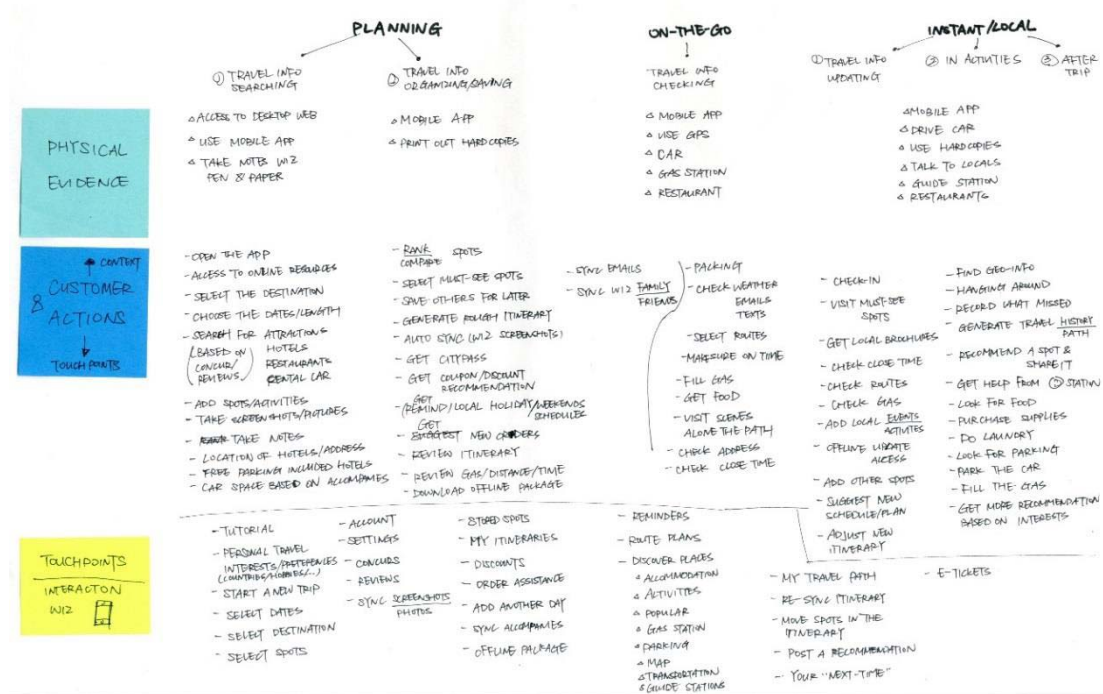 PLANNING
ON-THE-GO
INSTANT/LOCAL
① TRAVEL INFO
SEARCHING
② TRAVEL INFO
ORGANIZING/SAVING
TRAVEL INFO
CHECKING
① TRAVEL INFO
UPDATING
② IN ACTIVITIES
③ AFTER
TRIP
PHYSICAL
EVIDENCE
ACCESS TO DESKTOP WEB
USE MOBILE APP
TAKE NOTES WIZ
PEN & PAPER
MOBILE APP
PRINT OUT HARDCOPIES
MOBILE APP
USE GPS
CAR
GAS STATION
RESTAURANT
MOBILE APP
DRIVE CAR
USE HARDCOPIES
TALK TO LOCALS
GUIDE STATION
RESTAURANTS
CONTEXT
CUSTOMER
& ACTIONS
TOUCHPOINTS
- OPEN THE APP
- ACCESS TO ONLINE RESOURCES
- SELECT THE DESTINATION
- CHOOSE THE DATES/LENGTH
- SEARCH FOR ATTRACTIONS
(BASED ON HOTELS
CONCUR/ RESTAURANTS
REVIEWS) RENTAL CAR
- ADD SPOTS/ACTIVITIES
- TAKE SCREENSHOTS/PICTURES
- TAKE NOTES
- LOCATION OF HOTELS/ADDRESS
- FREE PARKING INCLUDED HOTELS
- CAR SPACE BASED ON ACCOMPANIES
- RANK SPOTS
COMPARE
- SELECT MUST-SEE SPOTS
- SAVE OTHERS FOR LATER
- GENERATE ROUGH ITINERARY
- AUTO SYNC (WIZ SCREENSHOTS)
- GET CITYPASS
- GET COUPON/DISCOUNT
RECOMMENDATION
GET
(REMIND/LOCAL HOLIDAY/WEEKENDS
SCHEDULES
GET
- SUGGEST NEW ORDERS
- REVIEW ITINERARY
- REVIEW GAS/DISTANCE/TIME
- DOWNLOAD OFFLINE PACKAGE
- SYNC EMAILS
- SYNC WIZ FAMILY
FRIENDS
- PACKING
- CHECK WEATHER
EMAILS
TEXTS
- SELECT ROUTES
- MAKE SURE ON TIME
- FILL GAS
- GET FOOD
- VISIT SCENES
ALONE THE PATH
- CHECK ADDRESS
- CHECK CLOSE TIME
- CHECK-IN
- VISIT MUST-SEE
SPOTS
- GET LOCAL BROCHURES
- CHECK CLOSE TIME
- CHECK ROUTES
- CHECK GAS
- ADD LOCAL EVENTS
ACTIVITES
- OFFLINE UPDATE
ACCESS
- ADD OTHER SPOTS
- SUGGEST NEW
SCHEDULE/PLAN
- ADJUST NEW
ITINERARY
- FIND GEO-INFO
- HANGING AROUND
- RECORD WHAT MISSED
- GENERATE TRAVEL HISTORY
PATH
- RECOMMEND A SPOT &
SHARE IT
- GET HELP FROM STATION
- LOOK FOR FOOD
- PURCHASE SUPPLIES
- DO LAUNDRY
- LOOK FOR PARKING
- PARK THE CAR
- FILL THE GAS
- GET MORE RECOMMENDATION
BASED ON INTERESTS
TOUCHPOINTS
INTERACTON
WIZ
- TUTORIAL
- PERSONAL TRAVEL
INTERESTS/PREFERENCES
(COUNTRIES/HOBBIES/..)
- START A NEW TRIP
- SELECT DATES
- SELECT DESTINATION
- SELECT SPOTS
- ACCOUNT
- SETTINGS
- CONCURS
- REVIEWS
- SYNC SCREENSHOTS
PHOTOS
- STORED SPOTS
- MY ITINERARIES
- DISCOUNTS
- ORDER ASSISTANCE
- ADD ANOTHER DAY
- SYNC ACCOMPANIES
- OFFLINE PACKAGE
- REMINDERS
- ROUTE PLANS
- DISCOVER PLACES
ACCOMMODATION
ACTIVITIES
POPULAR
GAS STATION
PARKING
MAP
TRANSPORTATION
GUIDE STATIONS
- MY TRAVEL PATH
- RE-SYNC ITINERARY
- MOVE SPOTS IN THE
ITINERARY
- POST A RECOMMENDATION
- YOUR "NEXT-TIME"
- E-TICKETS